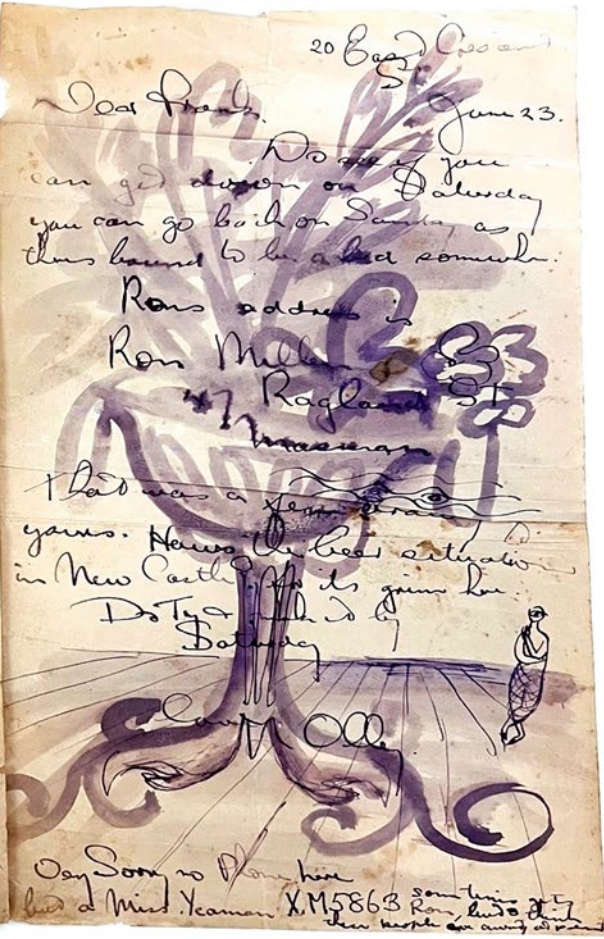 20 East Crescent
St
June 23.
Dear Frank.
Do see if you
can get down on Saturday
you can go back on Sunday as
thers bound to be a bed somewhere.
Rons address is
Ron Millar
Ragland St
That was a
yours. Hows the beer situation
in New Castle? its grim here.
Do Try & make it by
Saturday
Olly
Very Sorry no Phone here
but a Miss. Yeaman X.M5863 sometimes gets
Ron, but I think
these people are away at present